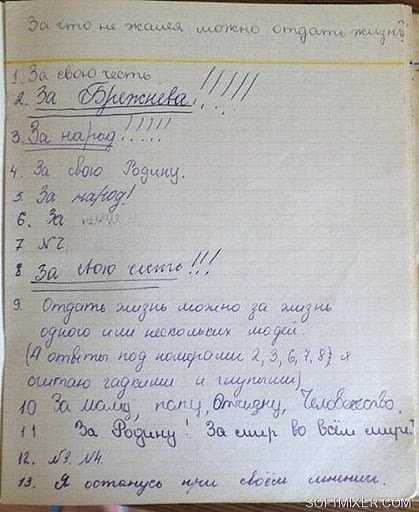 За что не жалея можно отдать жизнь?
1. За свою честь
2. За Брежнева!!!!!
3. За народ!!!!!
4. За свою Родину.
5. За народ!
6. За
7 N 2.
8 За свою честь!!!
9. Отдать жизнь можно за жизнь
одного или нескольких людей.
(А ответы под номерами 2, 3, 6, 7, 8} я
считаю гадкими и глупыми)
10 За маму, папу, Отчизну, Человечество.
11 За Родину! За мир во всём мире!
12. N3. N4.
13. Я останусь при своём мнении.
SOFTMIXER.COM